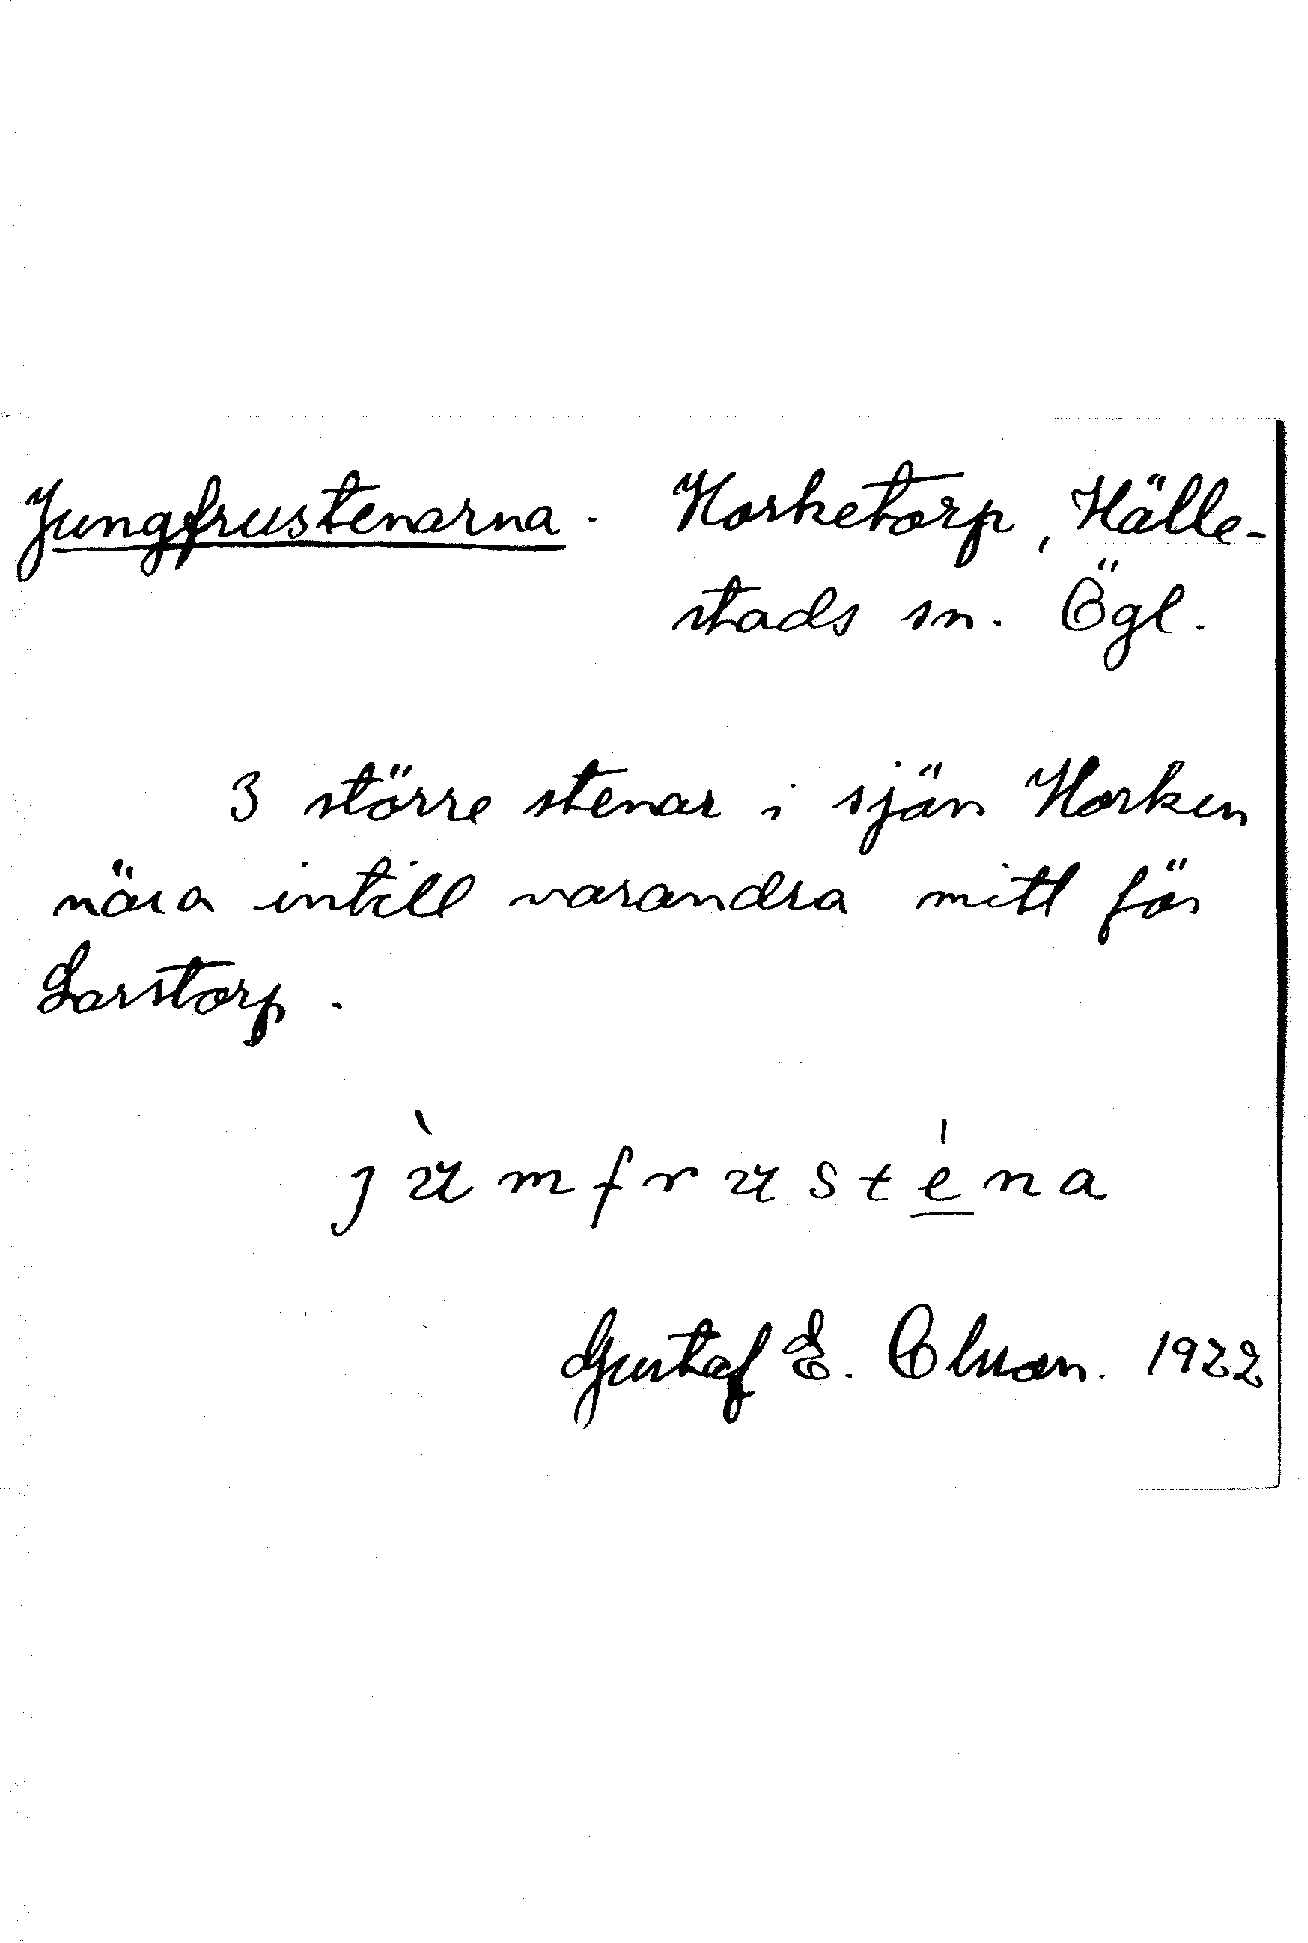 Jungfrustenarna. Horketorp, Hälle-
stads sn. Ögl.
3 större stenar i sjön Horken
nära intill varandra mitt för
Larstorp.
jùmfrusténa
Gustaf E. 1922